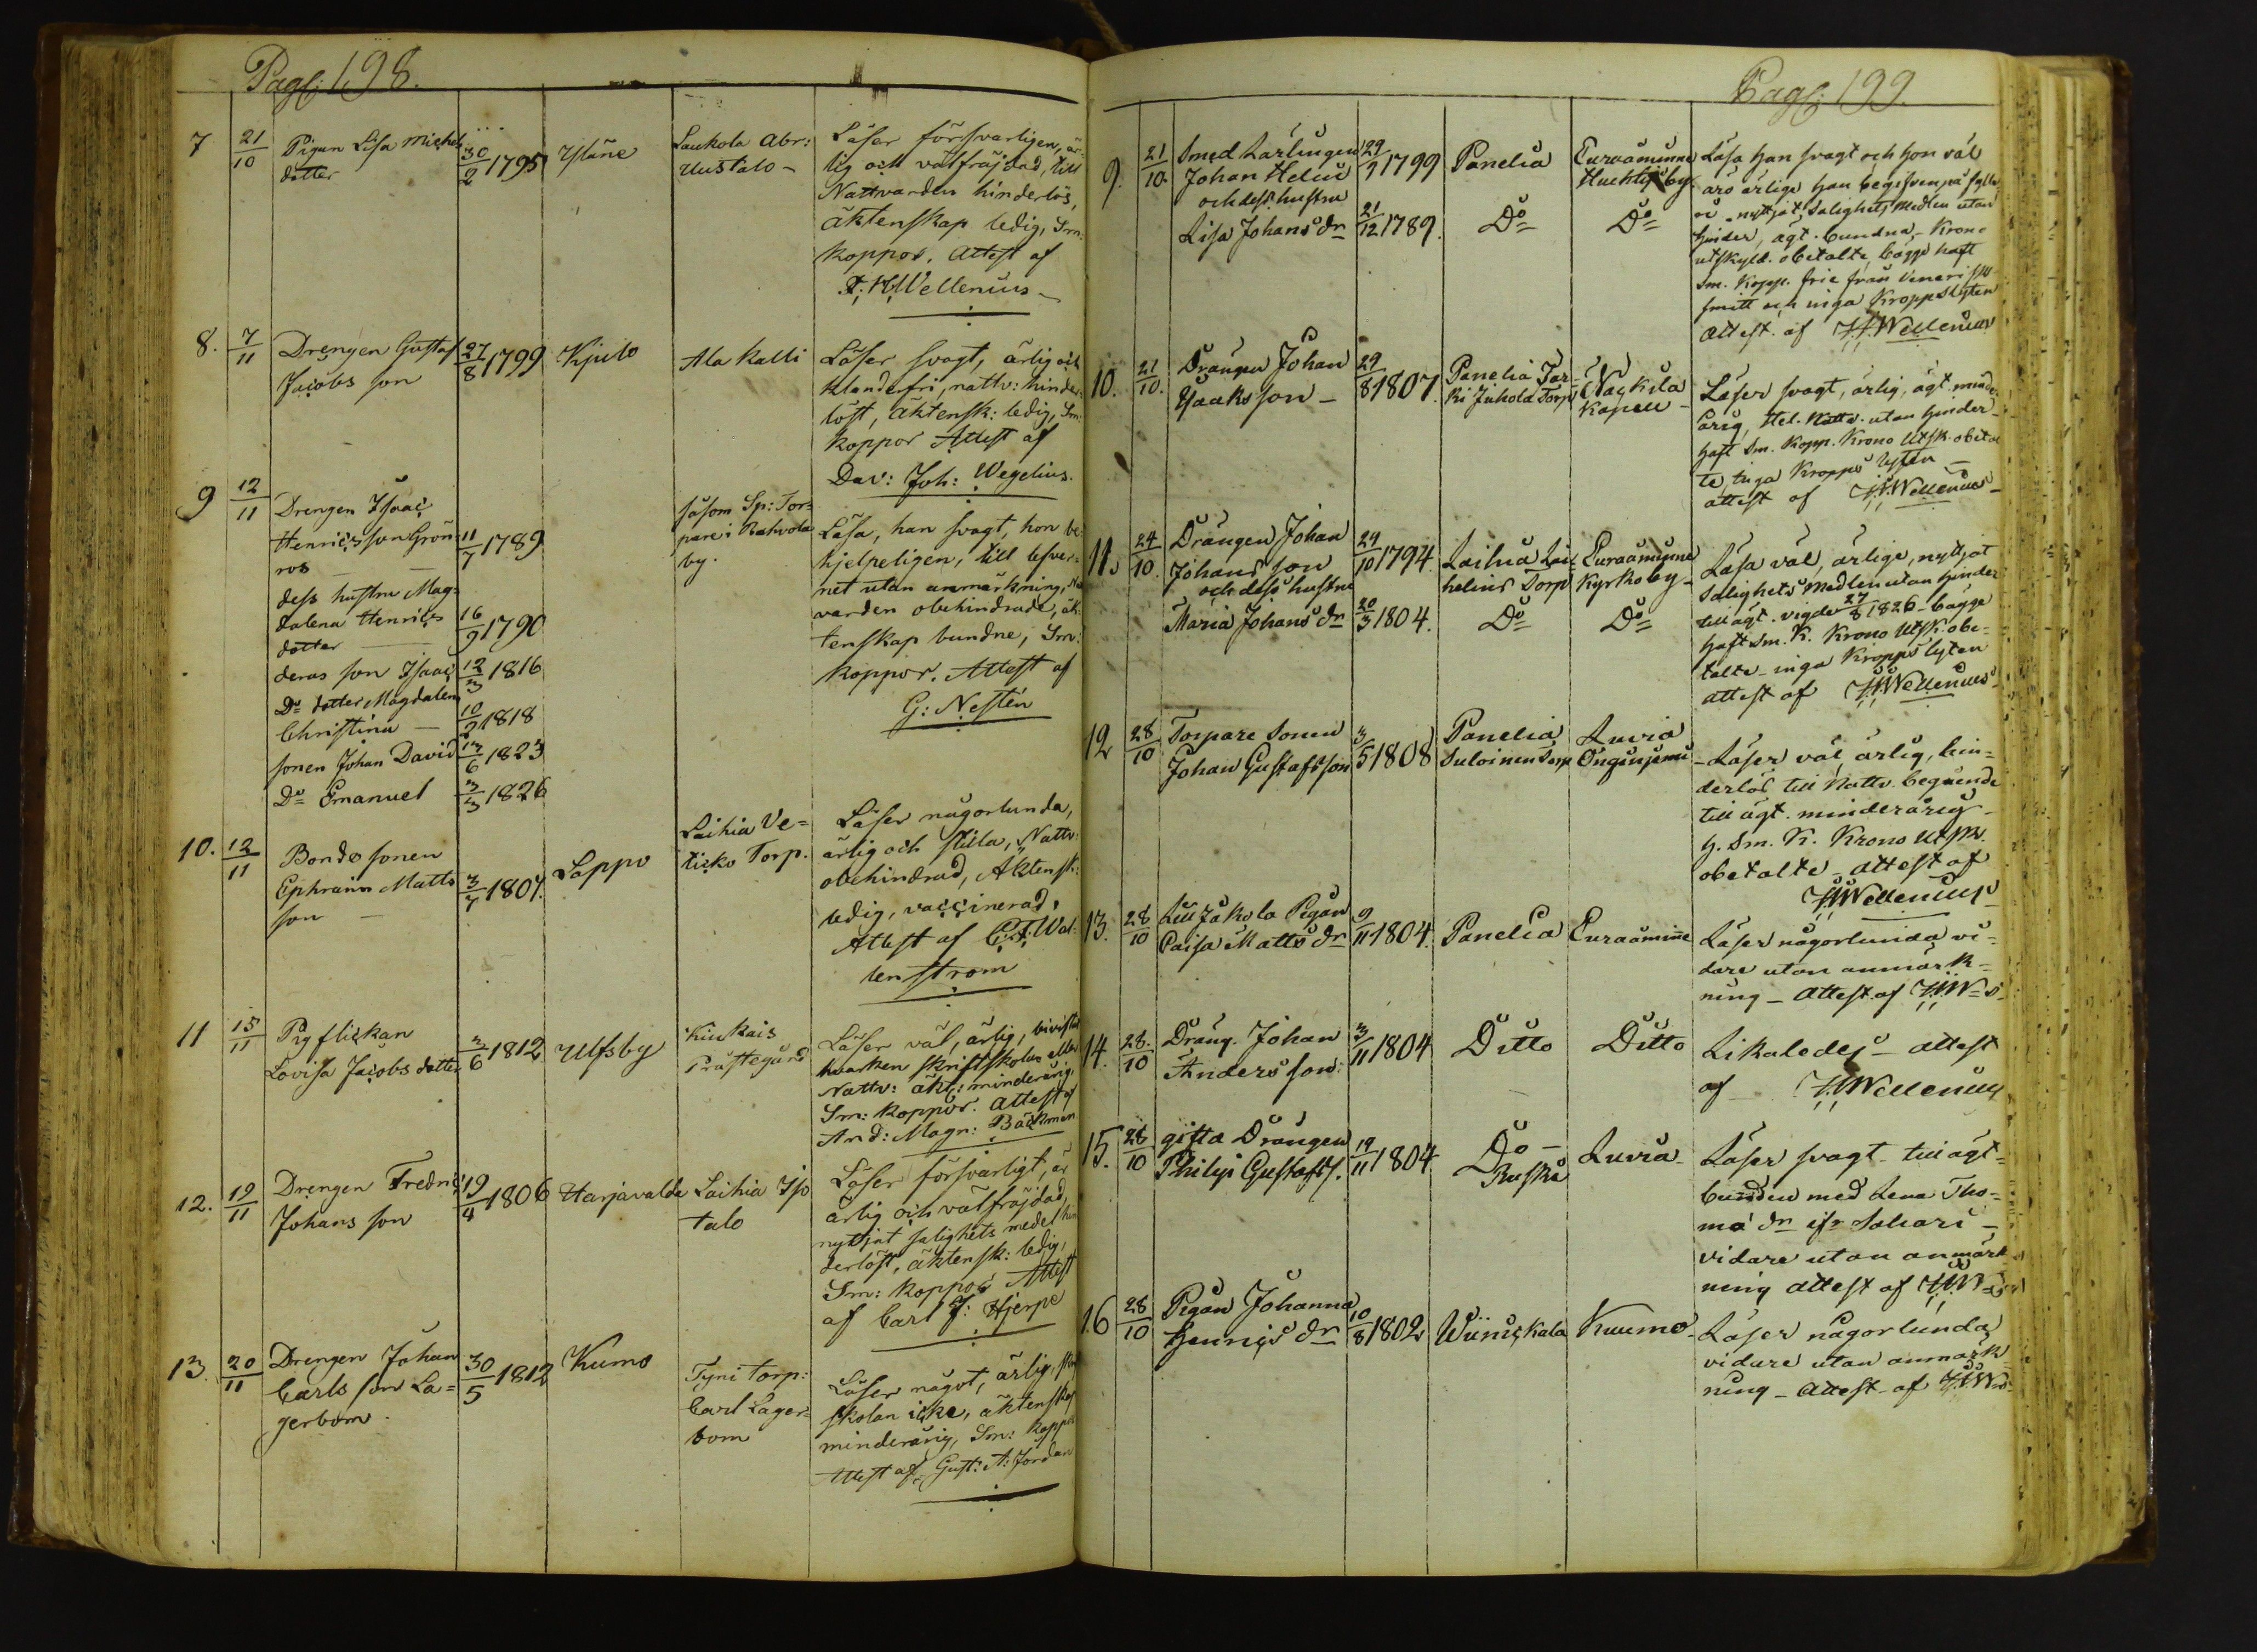 Pag: 198.
7 21/10 Pigan Lisa Michels
dotter 30/2 1795 Yläne Laukola Abr:
Uustalo - Läser försvarligen, är-
lig och välfräjdad, till
Nattvarden hinderlös,
äktenskap ledig, Sm:
koppor. Attest af
Wellenius
8. 7/11 Drengen Gustaf
Jacobs son 27/8 1799 Kjulo Ala Kalli Läser svagt, ärlig och
klanderfri, nattv: hinder-
löst, äktensk: ledig, Sm:
koppor Attest af
Dav: Joh: Wegelius.
9 12/11 Drengen Isaac
Henricsson Grön-
ros 11/7 1789
dess hustru Mag-
dalena Henrics
dotter 16/9 1790
deras son Isaac 12/3 1816
Do dotter Magdalena
Christina 10/2 1818
sonen Johan David 13/6 1823
Do Emanuel 3/3 1826
såsom Sp: Tor-
pare i Rahvola
by.
Läsa, han svagt, hon be-
hjelpeligen, till lefver-
net utan anmärkning, Natt
varden obehindrade, äk-
tenskap bundne, Sm:
koppor. Attest af
G: Nestén
10. 12/11 Bonde sonen
Ephraim Matts
son 3/7 1807. Lappo Laihia Ve-
ticko Torp. Läser någorlunda,
ärlig och stilla, Nattv:
obehindrad, Äktensk:
ledig, vaccinerad,
Attest af Wal-
lenstrom
11 15/11 Pigflickan
Lovisa Jacobs dotter 3/6 1812 Ulfsby Kiukais
Prästegård Läser väl, ärlig, bivistat
hvarken skriftskolan eller
Nattv: äkt: minderårig,
Sm: koppor. Attest af
And: Magn: Bäckman
12. 19/11 Drengen Fredric
Johans son 19/4 1806 Harjavalda Laihia Iso
talo Läser försvarligt, är
ärlig och välfräjdad,
nyttjat salighets medel hin
derlöst, äktensk: ledig,
Sm: koppor Attest
af Carl J: Hjerpe
13. 20/11 Drengen Johan
Carls son La-
gerbom. 30/5 1812 Kumo Tyni torp:
Carl Lager-
bom Läser något, ärlig,
skolan icke, äktenskap
minderårig, Sm: koppor
Attest af Gust: A: Jordan
Pag: 199.
9. 21/10 Smed Lärlingen
Johan Helin 29/9 1799 Panelia Euraåminne
och dess hustru
Lisa Johans dr 21/12 1789. Do Do
Läsa han svagt och hon väl
äro ärlige han begifven på
nyttjat Salighets Medlen utan
hinder, ägt. bundna - Krono
utskyld. obetalte, bägge haft
Sm. Kopp. frie från Venerisk
smitt och inga Kroppslyten
attest af Wellenius
10. 21/10. Drängen Johan
Isaksson - 29/8 1807. Panelia
Juhola Torp Nackila
Kapell - Läser svagt, ärlig, ägt. minder-
årig, Hel. Nattv. utan hinder
haft Sm. Kopp. Krono Utsk. obetal
te, inga Kropps lyten -
attest af Wellenius
11. 24/10. Drängen Johan
Johans son 24/10 1794. Laihia
helins Torp Euraåminne
Kyrkoby -
och dess hustru
Maria Johans dr 20/3 1804. Do Do
Läsa väl, ärlige, nyttjat
Salighets Medlen utan hinder
till ägt. vigde 27/8 1826 - bägge
haft Sm. K. Krono Utsk. obe-
talte - inga Kropps lyten
attest af Wellenius
12 28/10 Torpare Sonen
Johan Gustafsson 3/5 1808 Panelia
Suloinen Torp Luvia
- Läser väl, ärlig, hin-
derlös till Nattv. begående
till ägt. minderårig -
h. Sm. K. Krono Utsk.
obetalte - attest af
Wellenius
13. 28/10 Pigan
Caisa Matts dr 9/11 1804. Panelia Euraåminne Läser någorlunda vi-
dare utan anmärk-
ning - Attest af
14. 28/10 Dräng. Johan
Anders son 3/11 1804 Ditto Ditto Likaledes - attest
af Wellenius
15. 28/10 gifta Drängen
Philip Gustafs s. 19/11 1804 Do -
Luvia - Läser svagt - till ägt-
bunden med Lena Tho-
ma dr
vidare utan anmärk
ning attest af
16 28/10 Pigan Johanna
Henrics dr 10/8 1802 Kuumo - Läser någorlunda
vidare utan anmärk
ning - Attest af